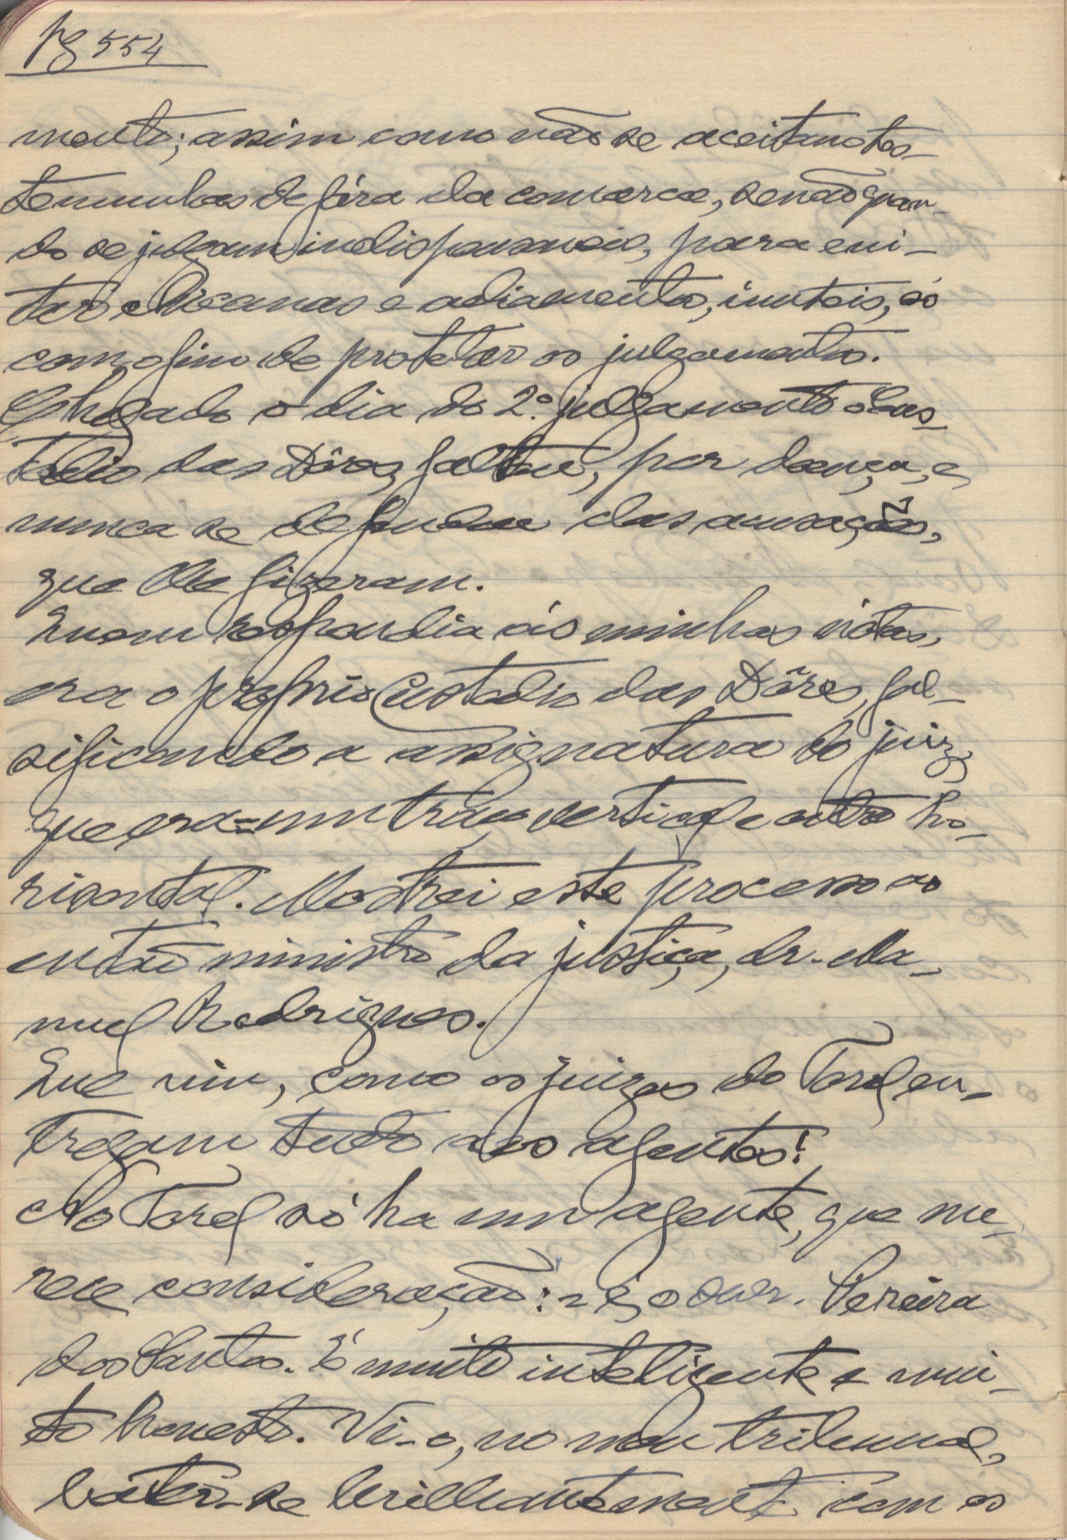 pg 554
mento; assim como não se aceitam tes-
temunhas de fóra da comarca, senão quan-
do se julgam indispensaveis, para evi-
tar chicanas e adiamentos, inuteis, só
com o fim de protelar os julgamentos.
Chegado o dia do 2.º julgamento o Cus-
todio das Dôres, faltou, por doença, e
nunca se defendeu das acusações,
que lhe fizeram.
Quem respondia ás minhas notas,
era o proprio Custodio das Dôres, fal-
sificando a assignatura do juiz,
que era = um traço vertical e outro ho-
risontal. Mostrei este processo ao
então ministro da justiça, dr. Ma-
nuel Rodrigues.
Que viu, como os juizes do Torel en-
tregam tudo aos agentes!
No Torel só ha um agente, que me-
rece consideração: é, o Pereira
dos Santos. É muito inteligente e mui-
to honesto. Vi-o, no meu tribunal,
bater-se brilhantemente com os